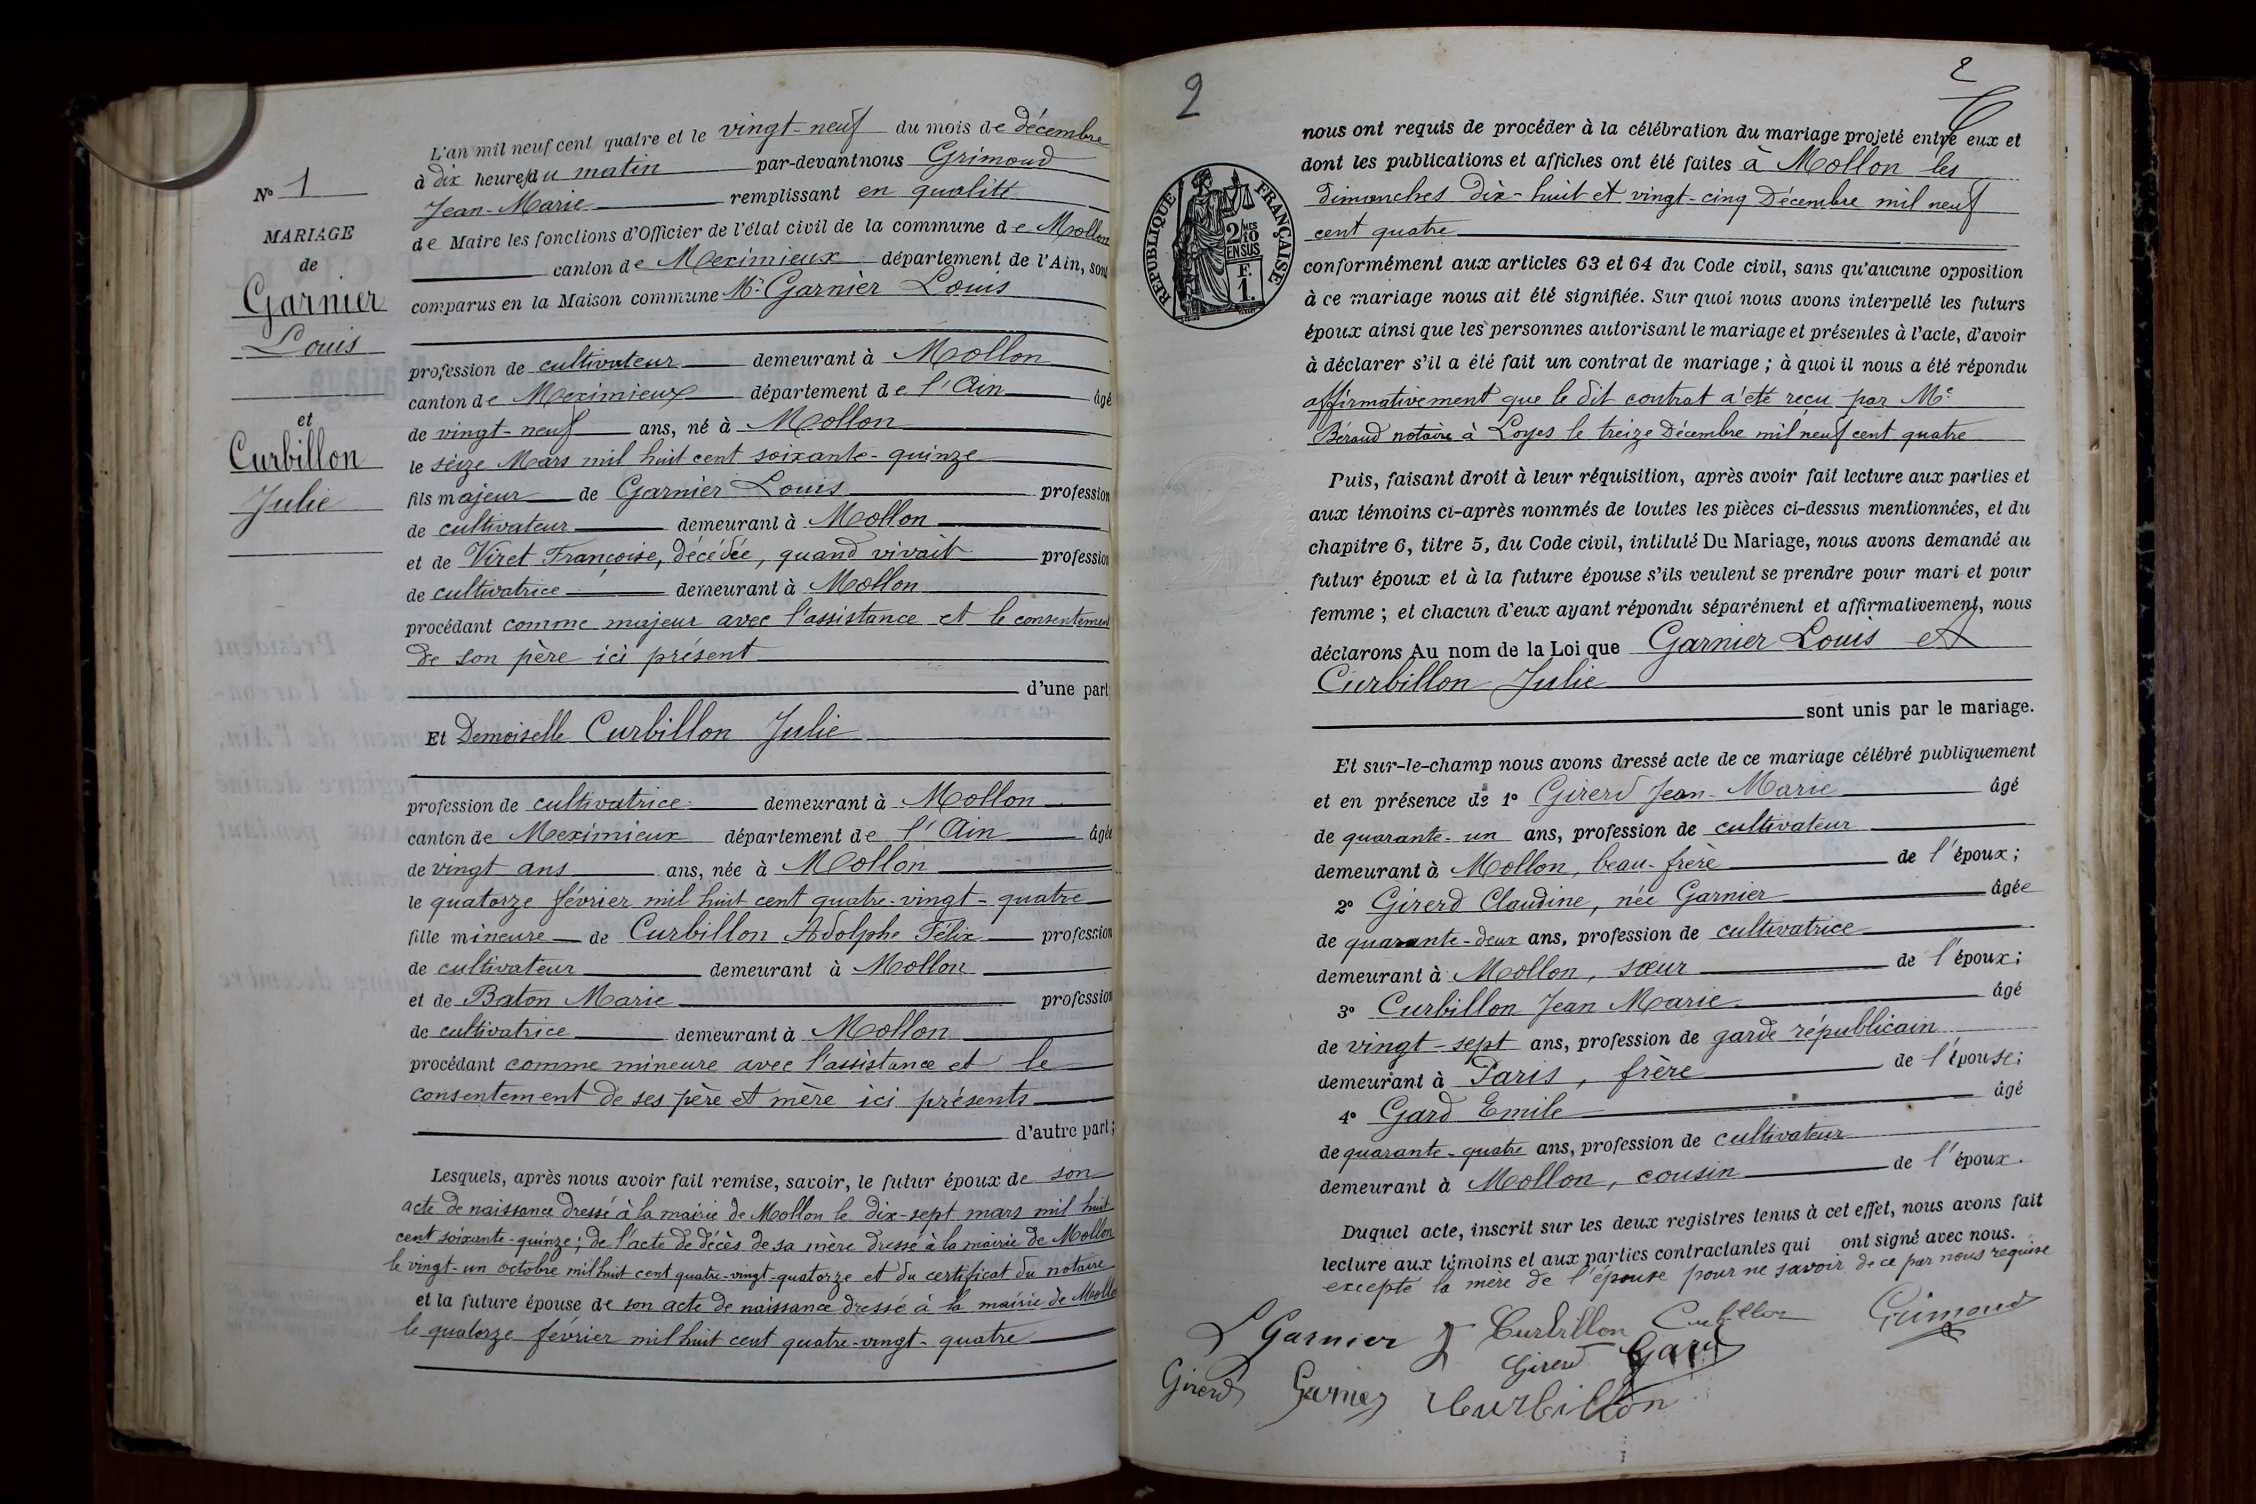 N° 1
MARIAGE
de
Garnier
Louis
et
Curbillon
Julie
L'an mil neuf cent quatre et le vingt-neuf du mois de décembre
à dix heures du matin par-devant nous Grimoud
Jean-Marie remplissant en qualité
de Maire les fonctions d'Officier de l'état civil de la commune de Mollon
canton de Meximieux département de l'Ain, sont
comparus en la Maison commune Mr. Garnier Louis
profession de cultivateur demeurant à Mollon
canton de Meximieux département de l'Ain âgé
de vingt-neuf ans, né à Mollon
le seize Mars mil huit cent soixante-quinze
fils majeur de Garnier Louis profession
de cultivateur demeurant à Mollon
et de Viret Françoise, décédée, quand vivait profession
de cultivatrice demeurant à Mollon
procédant comme majeur avec l'assistance et le consentement
de son père ici présent
d'une part;
Et Demoiselle Curbillon Julie
profession de cultivatrice demeurant à Mollon
canton de Meximieux département de l'Ain âgée
de vingt ans ans, née à Mollon
le quatorze février mil huit cent quatre-vingt-quatre
fille mineure de Curbillon Adolphe Félix profession
de cultivateur demeurant à Mollon
et de Baton Marie profession
de cultivatrice demeurant à Mollon
procédant comme mineure avec l'assistance et le
consentement de ses père et mère ici présents
d'autre part;
Lesquels, après nous avoir fait remise, savoir, le futur époux de son
acte de naissance dressé à la mairie de Mollon le dix-sept mars mil huit
cent soixante-quinze; de l'acte de décès de sa mère dressé à la mairie de Mollon
le vingt-un octobre mil huit cent quatre-vingt-quatorze et du certificat du notaire
et la future épouse de son acte de naissance dressé à la mairie de Mollon
le quatorze février mil huit cent quatre-vingt-quatre
2
2
RÉPUBLIQUE FRANÇAISE
2 MES
10
EN SUS
F.
1.
nous ont requis de procéder à la célébration du mariage projeté entre eux et
dont les publications et affiches ont été faites à Mollon les
dimanches dix-huit et vingt-cinq Décembre mil neuf
cent quatre
conformément aux articles 63 et 64 du Code civil, sans qu'aucune opposition
à ce mariage nous ait été signifiée. Sur quoi nous avons interpellé les futurs
époux ainsi que les personnes autorisant le mariage et présentes à l'acte, d'avoir
à déclarer s'il a été fait un contrat de mariage ; à quoi il nous a été répondu
affirmativement que le dit contrat a été reçu par Me
Béraud notaire à Loyes le treize Décembre mil neuf cent quatre
Puis, faisant droit à leur réquisition, après avoir fait lecture aux parties et
aux témoins ci-après nommés de toutes les pièces ci-dessus mentionnées, et du
chapitre 6, titre 5, du Code civil, intitulé Du Mariage, nous avons demandé au
futur époux et à la future épouse s'ils veulent se prendre pour mari et pour
femme ; et chacun d'eux ayant répondu séparément et affirmativement, nous
déclarons Au nom de la Loi que Garnier Louis et
Curbillon Julie
sont unis par le mariage.
Et sur-le-champ nous avons dressé acte de ce mariage célébré publiquement
et en présence de 1° Girerd Jean-Marie âgé
de quarante-un ans, profession de cultivateur
demeurant à Mollon, beau-frère de l'époux;
2° Girerd Claudine, née Garnier âgée
de quarante-deux ans, profession de cultivatrice
demeurant à Mollon, sœur de l'époux;
3° Curbillon Jean Marie âgé
de vingt-sept ans, profession de garde républicain
demeurant à Paris, frère de l'épouse;
4° Gard Emile âgé
de quarante-quatre ans, profession de cultivateur
demeurant à Mollon, cousin de l'époux.
Duquel acte, inscrit sur les deux registres tenus à cet effet, nous avons fait
lecture aux témoins et aux parties contractantes qui ont signé avec nous.
excepté la mère de l'épouse pour ne savoir de ce par nous requise
L Garnier J Curbillon Curbillon Grimoud
Girerd Gard
Girerd Garnier Curbillon